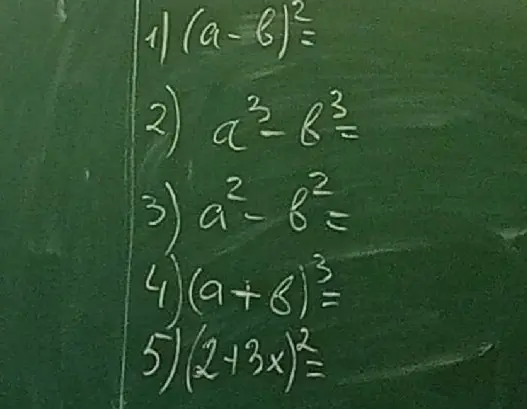 1) (a - b)² =
2) a³ - b³ =
3) a² - b² =
4) (a + b)³ =
5) (2+3x)² =